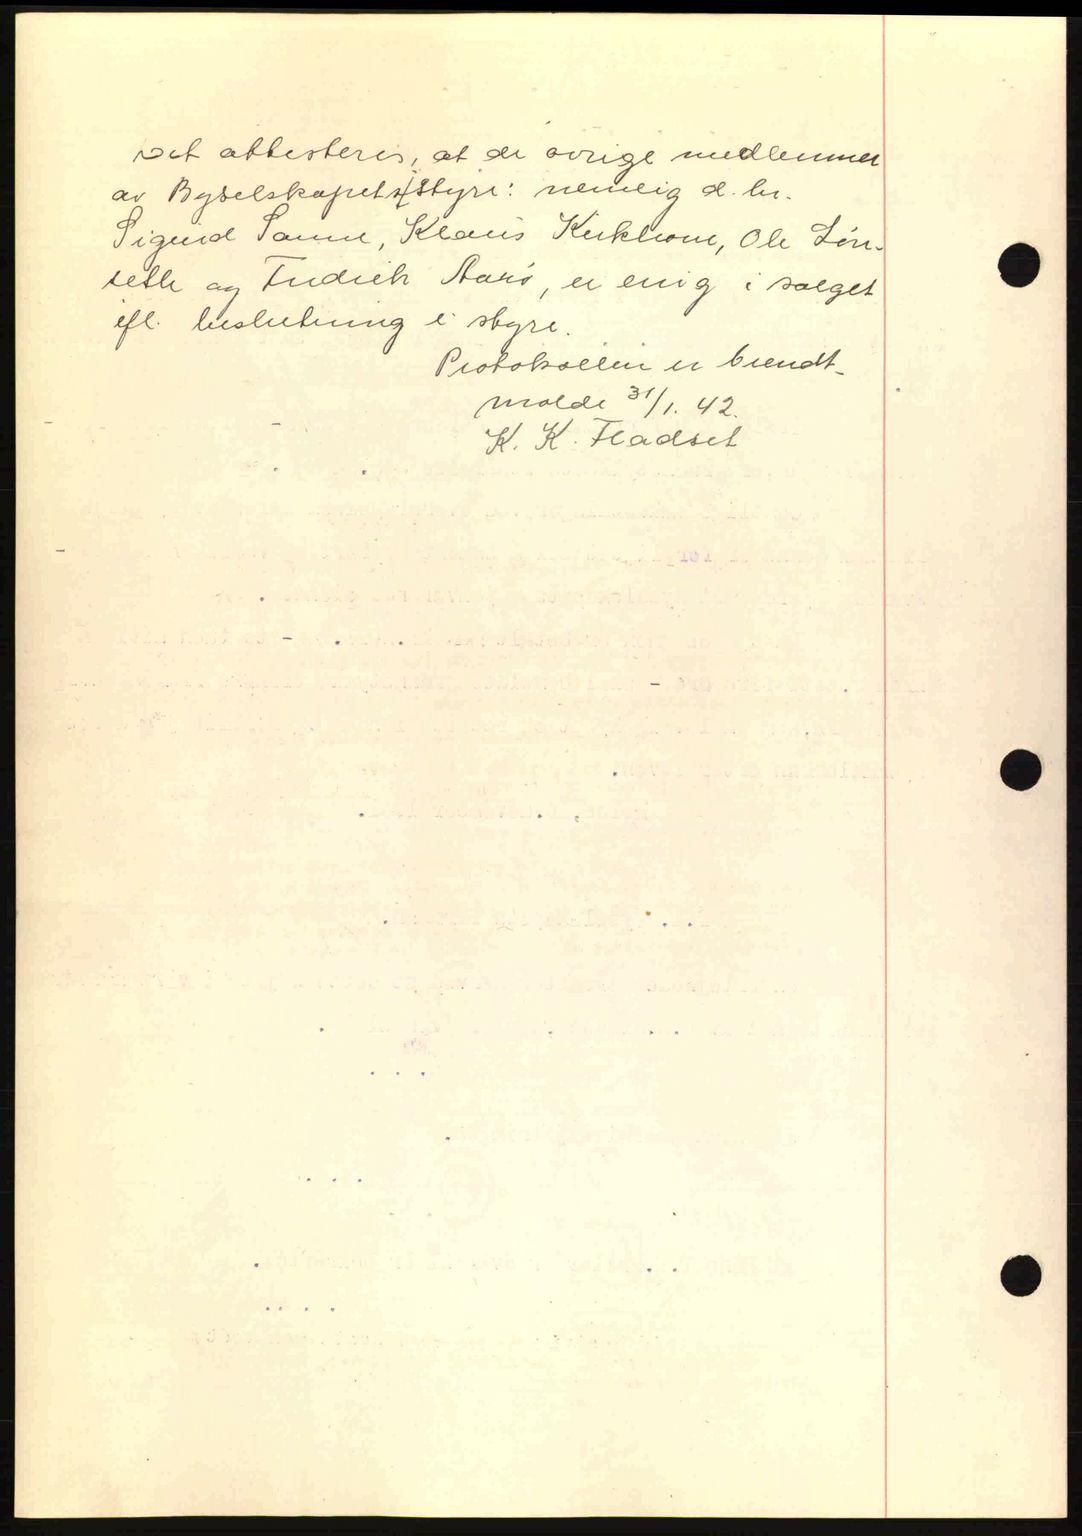 Det attesteres, at de øvrige medlemmer
av Byselskapets styre: nemlig d. hr.
Sigurd Sanne, Klaus Kirkhorn, Ole Løn-
seth og Fredrik Aarø, er enig i salget
ifl. beslutning i styre.
Protokollen er brendt.
Molde 31/1. 42.
K. K. Fladset